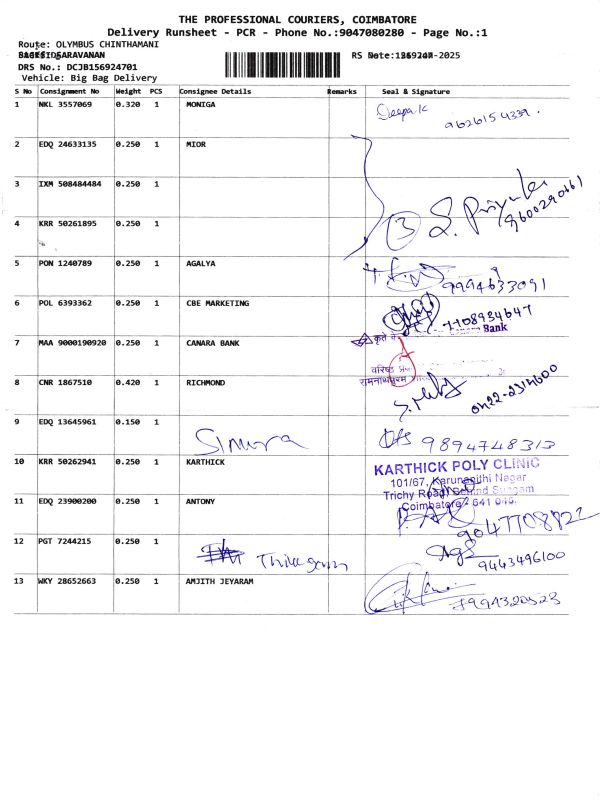 THE PROFESSIONAL COURIERS, COIMBATORE
Delivery Runsheet - PCR - Phone No.:9047080280 - Page No.:1
Route: OLYMBUS CHINTHAMANI
SARAVANAN
RS -2025
DRS No.: DCJB156924701
Vehicle: Big Bag Delivery
S No Consignment No Weight PCS Consignee Details Remarks Seal & Signature
1 NKL 3557069 0.320 1 MONIGA Deepak
9626154339.
2 EDQ 24633135 0.250 1 MIOR
3 IXM 508484484 0.250 1
4 KRR 50261895 0.250 1 3 S. Priyanka
9600290661
5 PON 1240789 0.250 1 AGALYA 9994633091
6 POL 6393362 0.250 1 CBE MARKETING 7708934647
Bank
7 MAA 9000190920 0.250 1 CANARA BANK
वरिष्ठ
रामनाथपुरम
8 CNR 1867510 0.420 1 RICHMOND 0422-2314600
9 EDQ 13645961 0.150 1 9894748313
10 KRR 50262941 0.250 1 KARTHICK KARTHICK POLY CLINIC
101/67, Karunanithi Nagar
Trichy Road Behind Sungam
Coimbatore - 641 045.
11 EDQ 23900200 0.250 1 ANTONY 9047708822
12 PGT 7244215 0.250 1 9443496100
13 WKY 28652663 0.250 1 AMJITH JEYARAM